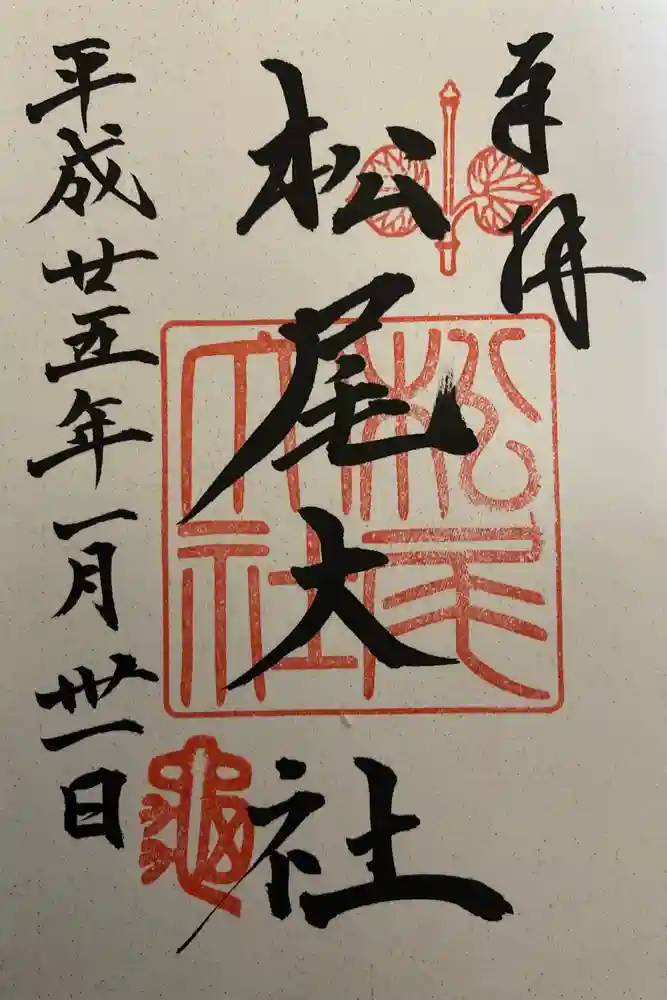 奉拝
松尾大社
平成廿五年一月卅一日
松尾
大社